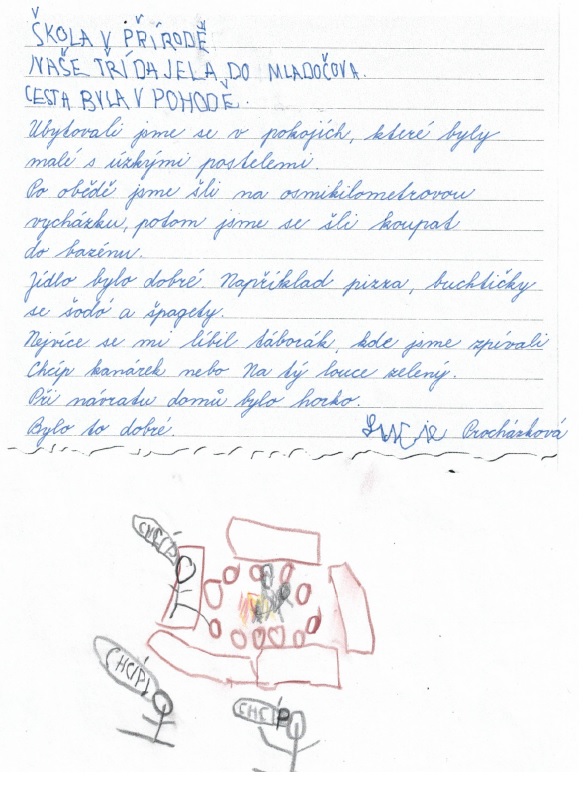 ŠKOLA V PŘÍRODĚ.
NAŠE TŘÍDA JELA DO MLADOČOVA.
CESTA BYLA V POHODĚ.
Ubytovali jsme se v pokojích, které byly
malé s úzkými postelemi.
Po obědě jsme šli na osmikilometrovou
vycházku, potom jsme se šli koupat
do bazénu.
Jídlo bylo dobré. Například pizza, buchtičky
se šodó a špagety.
Nejvíce se mi líbil táborák, kde jsme zpívali
Chcíp kanárek nebo Na tý louce zelený.
Při návratu domů bylo horko.
Bylo to dobré.
Lucie Procházková
CHCÍP
CHCÍPL
CHCÍP